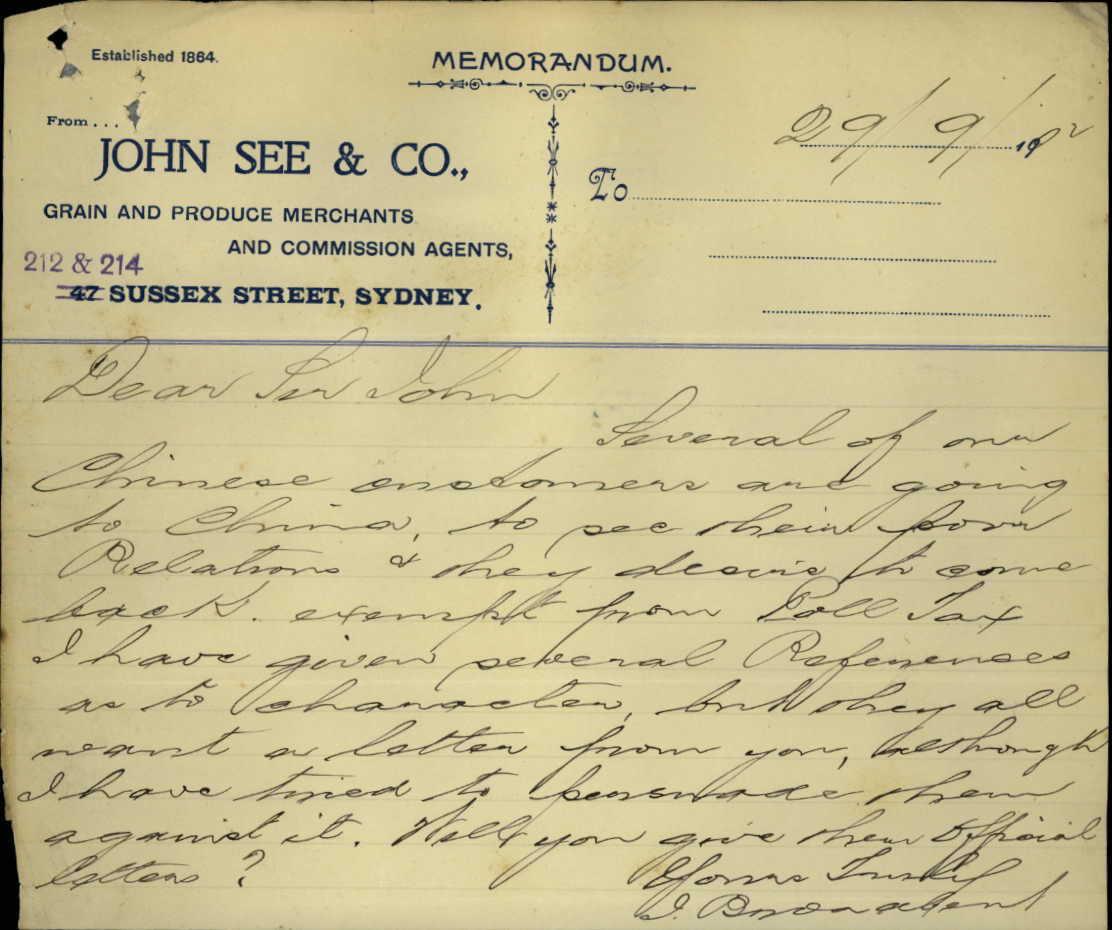 Established 1864.
MEMORANDUM.
From...
29/9/192
JOHN SEE & CO.,
To
GRAIN AND PRODUCE MERCHANTS
AND COMMISSION AGENTS,
212 & 214
47 SUSSEX STREET, SYDNEY.
Dear Sir John
Several of our
Chinese customers are going
to China, to see their
Relations & they desire to come
back. exempt from Poll Tax
I have given several References
as to character, but they all
want a letter from you, although
I have tried to persuade them
against it. Will you give them Official
letters?
Yours Truly